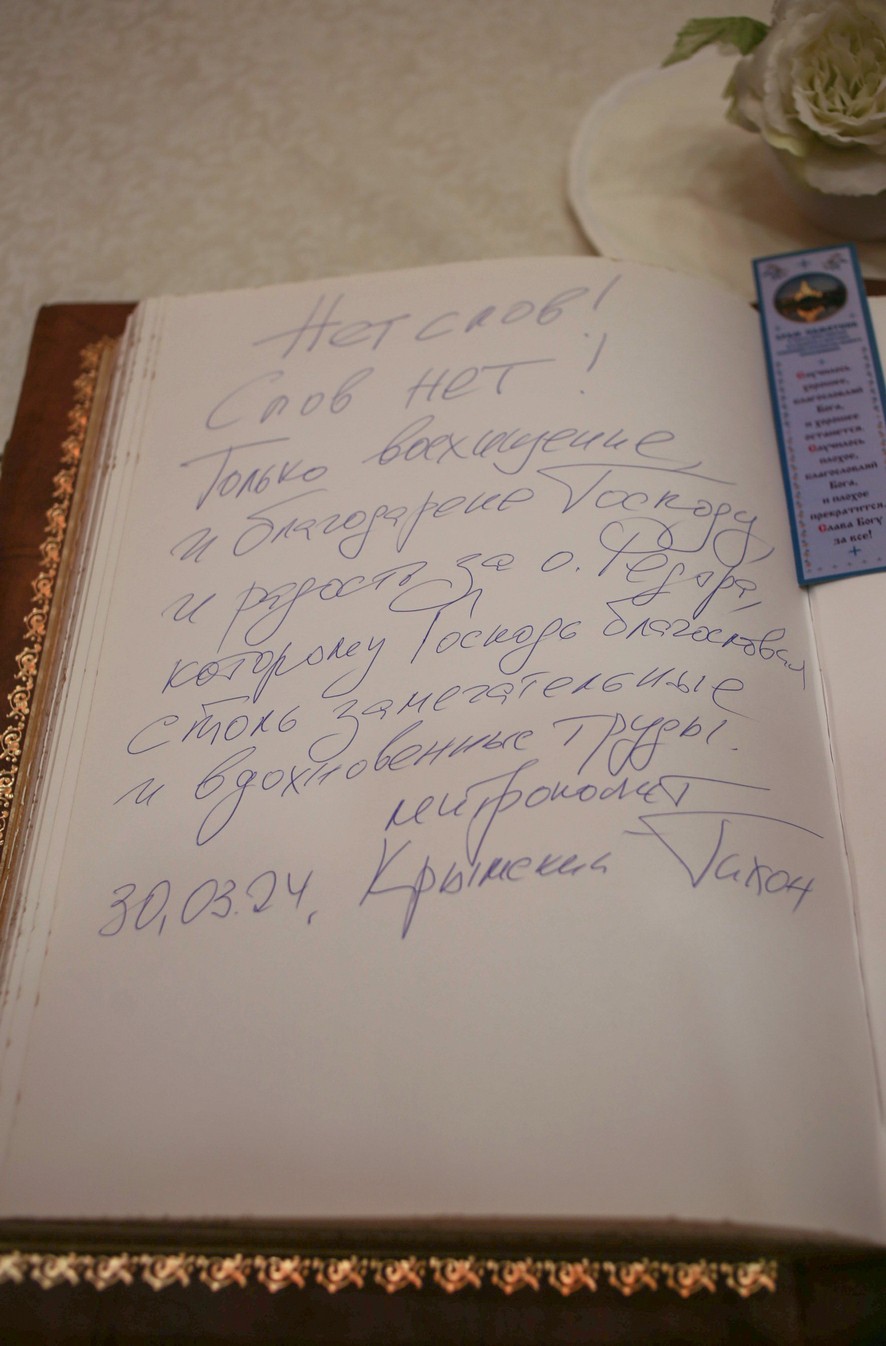 Нет слов!
Слов нет!
Только восхищение
и благодарение Господу,
и радость за о. Федора,
которому Господь благословил
столь замечательные
и вдохновенные труды.
митрополит
30.03.24. Крымский Тихон
Случилось
хорошее,
благословляй
Бога,
и хорошее
останется.
Случилось
плохое,
благословляй
Бога,
и плохое
прекратится.
Слава Богу
за все!